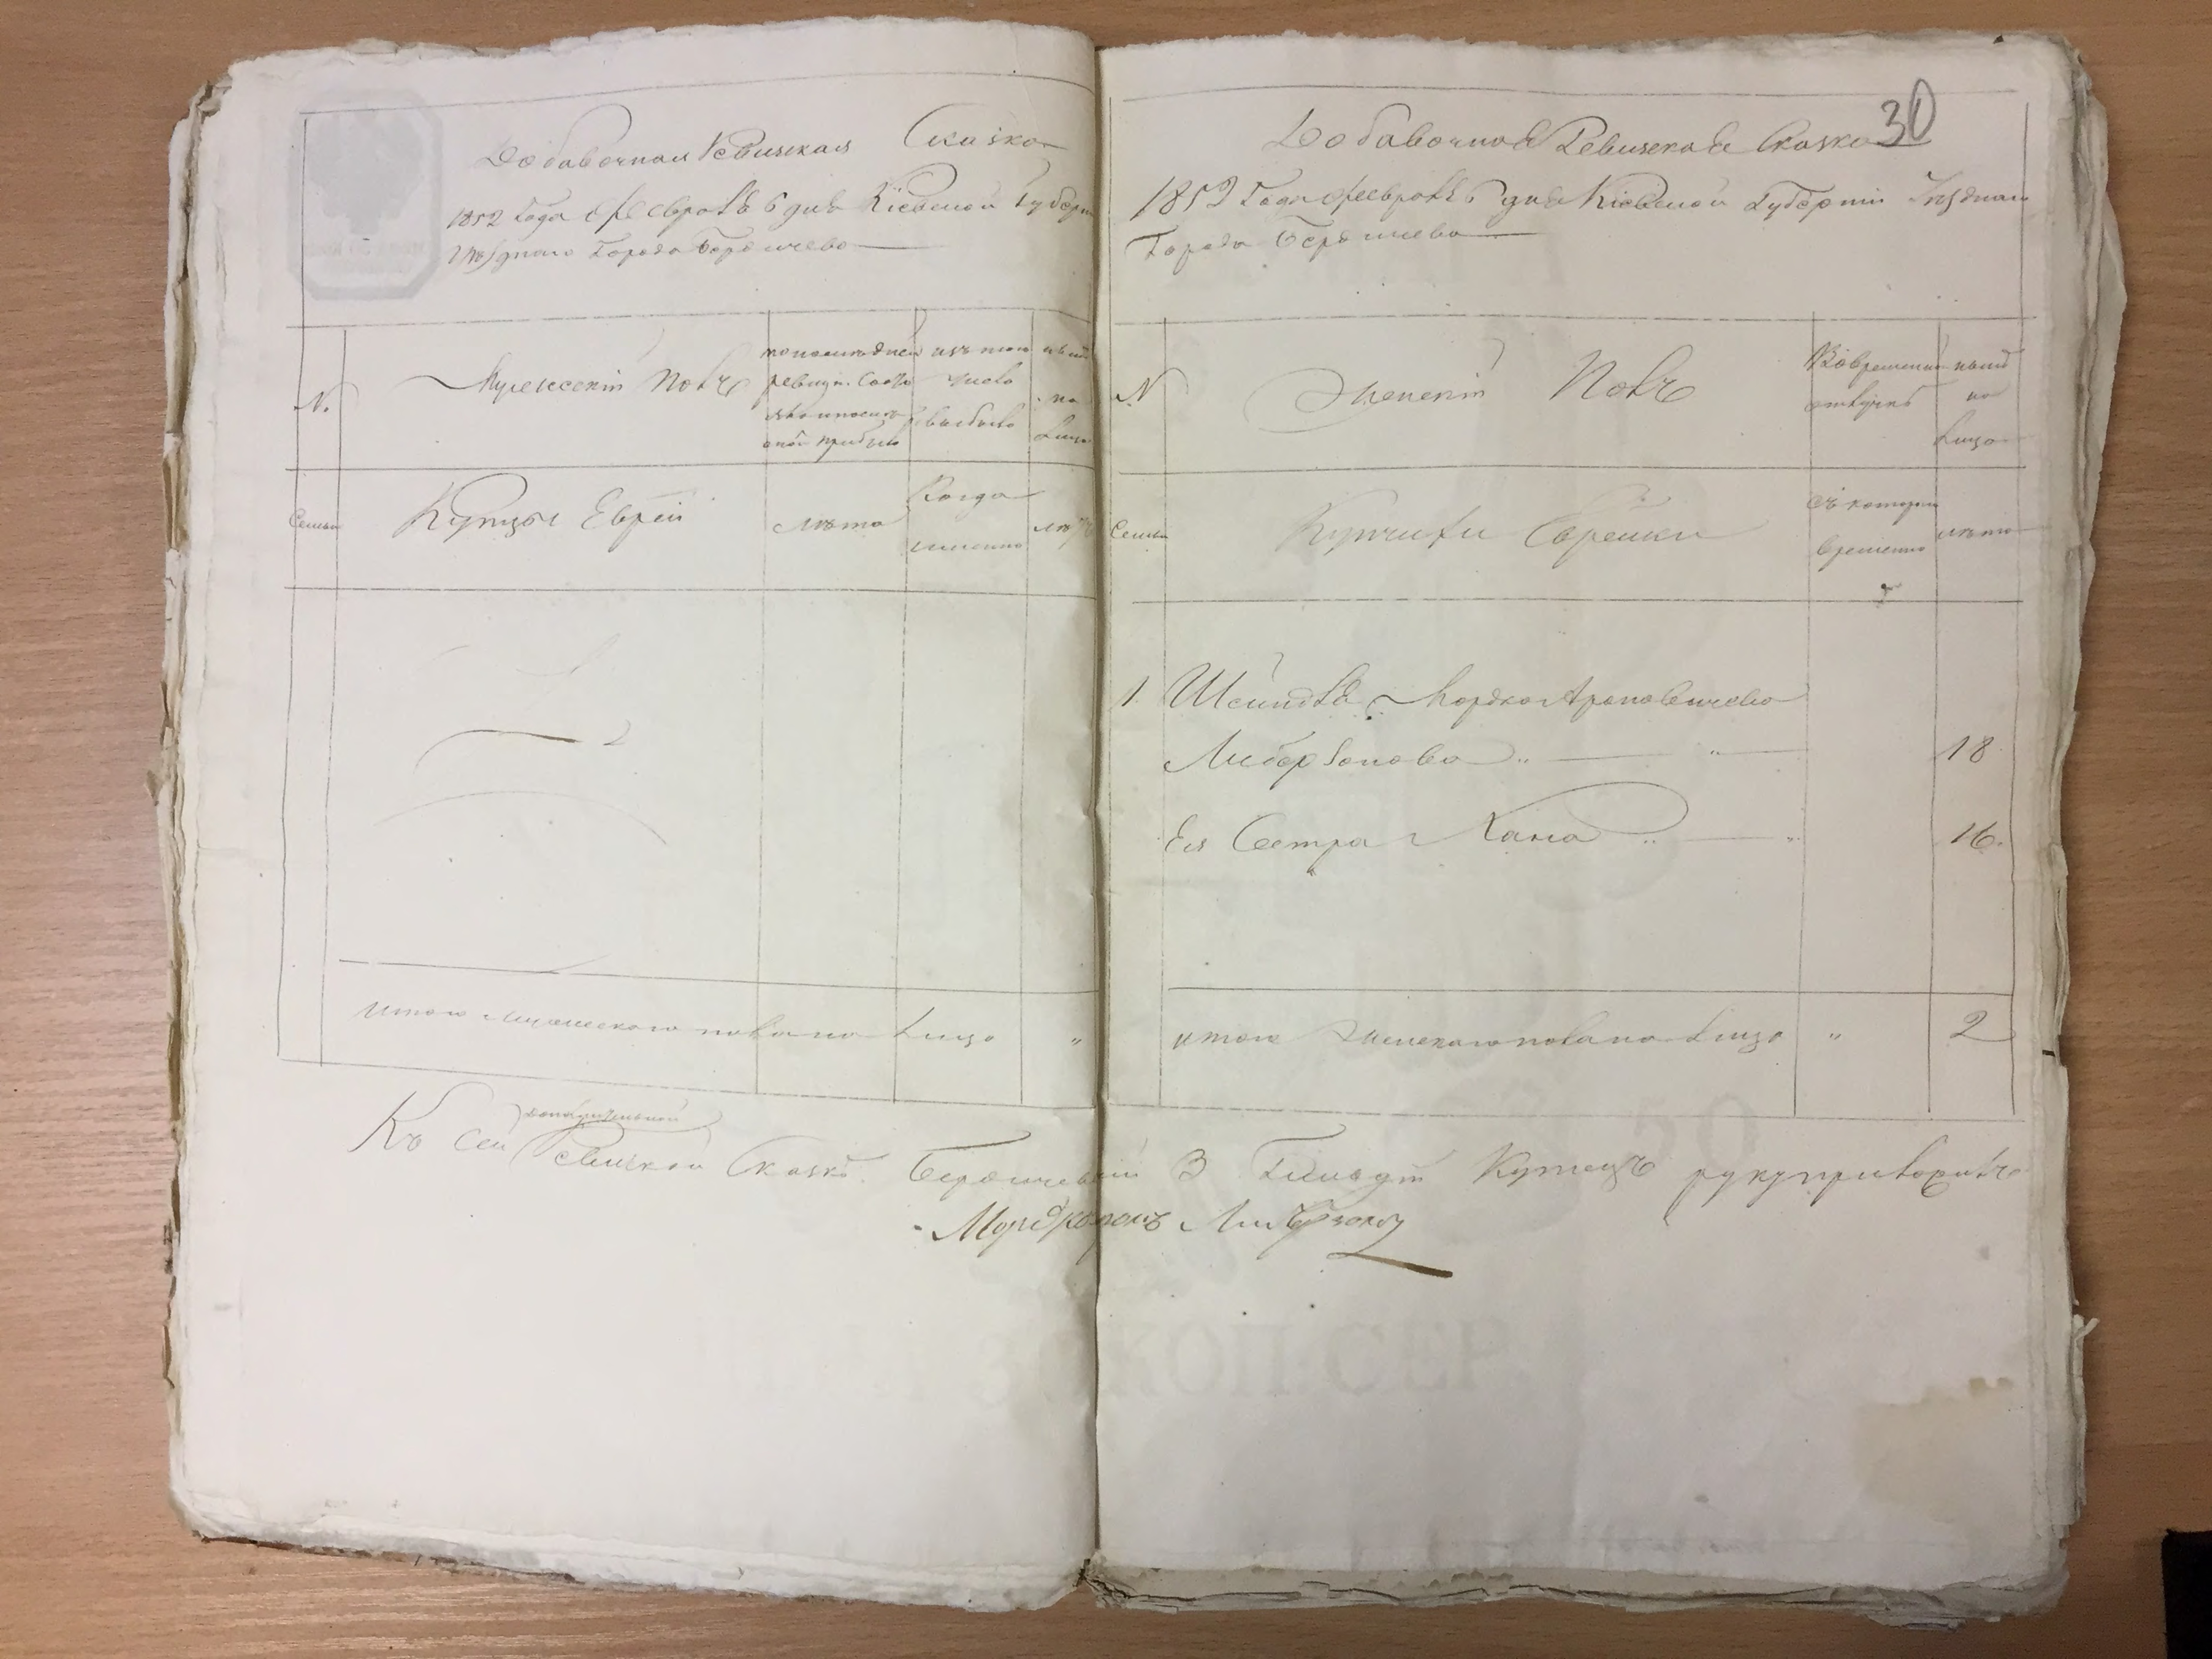 Добавочная Ревизская Сказка
1852 Года Февраля 6 дня Кіевской Губерніи
Уѣзднаго Города Бердичева
№
Мужескій полъ
по последней
ревизіи состо
яло и после
оной прибыло
изъ того
числа
выбыло
нынѣ
на
лицо
Семьи
Купцы Евреи
лѣта
Когда
именно
лѣта
Итого мужескаго пола на лицо "
30
Добавочная Ревизская Сказка
1852 Года Февраля 6 дня Кіевской Губерніи Уѣзднаго
Города Бердичева
№
Женскій Полъ
Во временной
отлучкѣ
нынѣ
на
лицо
Семьи
Купчихи Еврейки
съ котораго
времени
лѣта
1 Шейндля Мордко Ароновичева
Либерзонова " — " — 18
Ея Сестра Хана " — " 16.
итого Женскаго пола на лицо " 2
Къ сей дополнительной Ревизской Сказкѣ Бердичевскій 3 Гильдіи Купецъ руку приложилъ
Мордко Либерзонъ